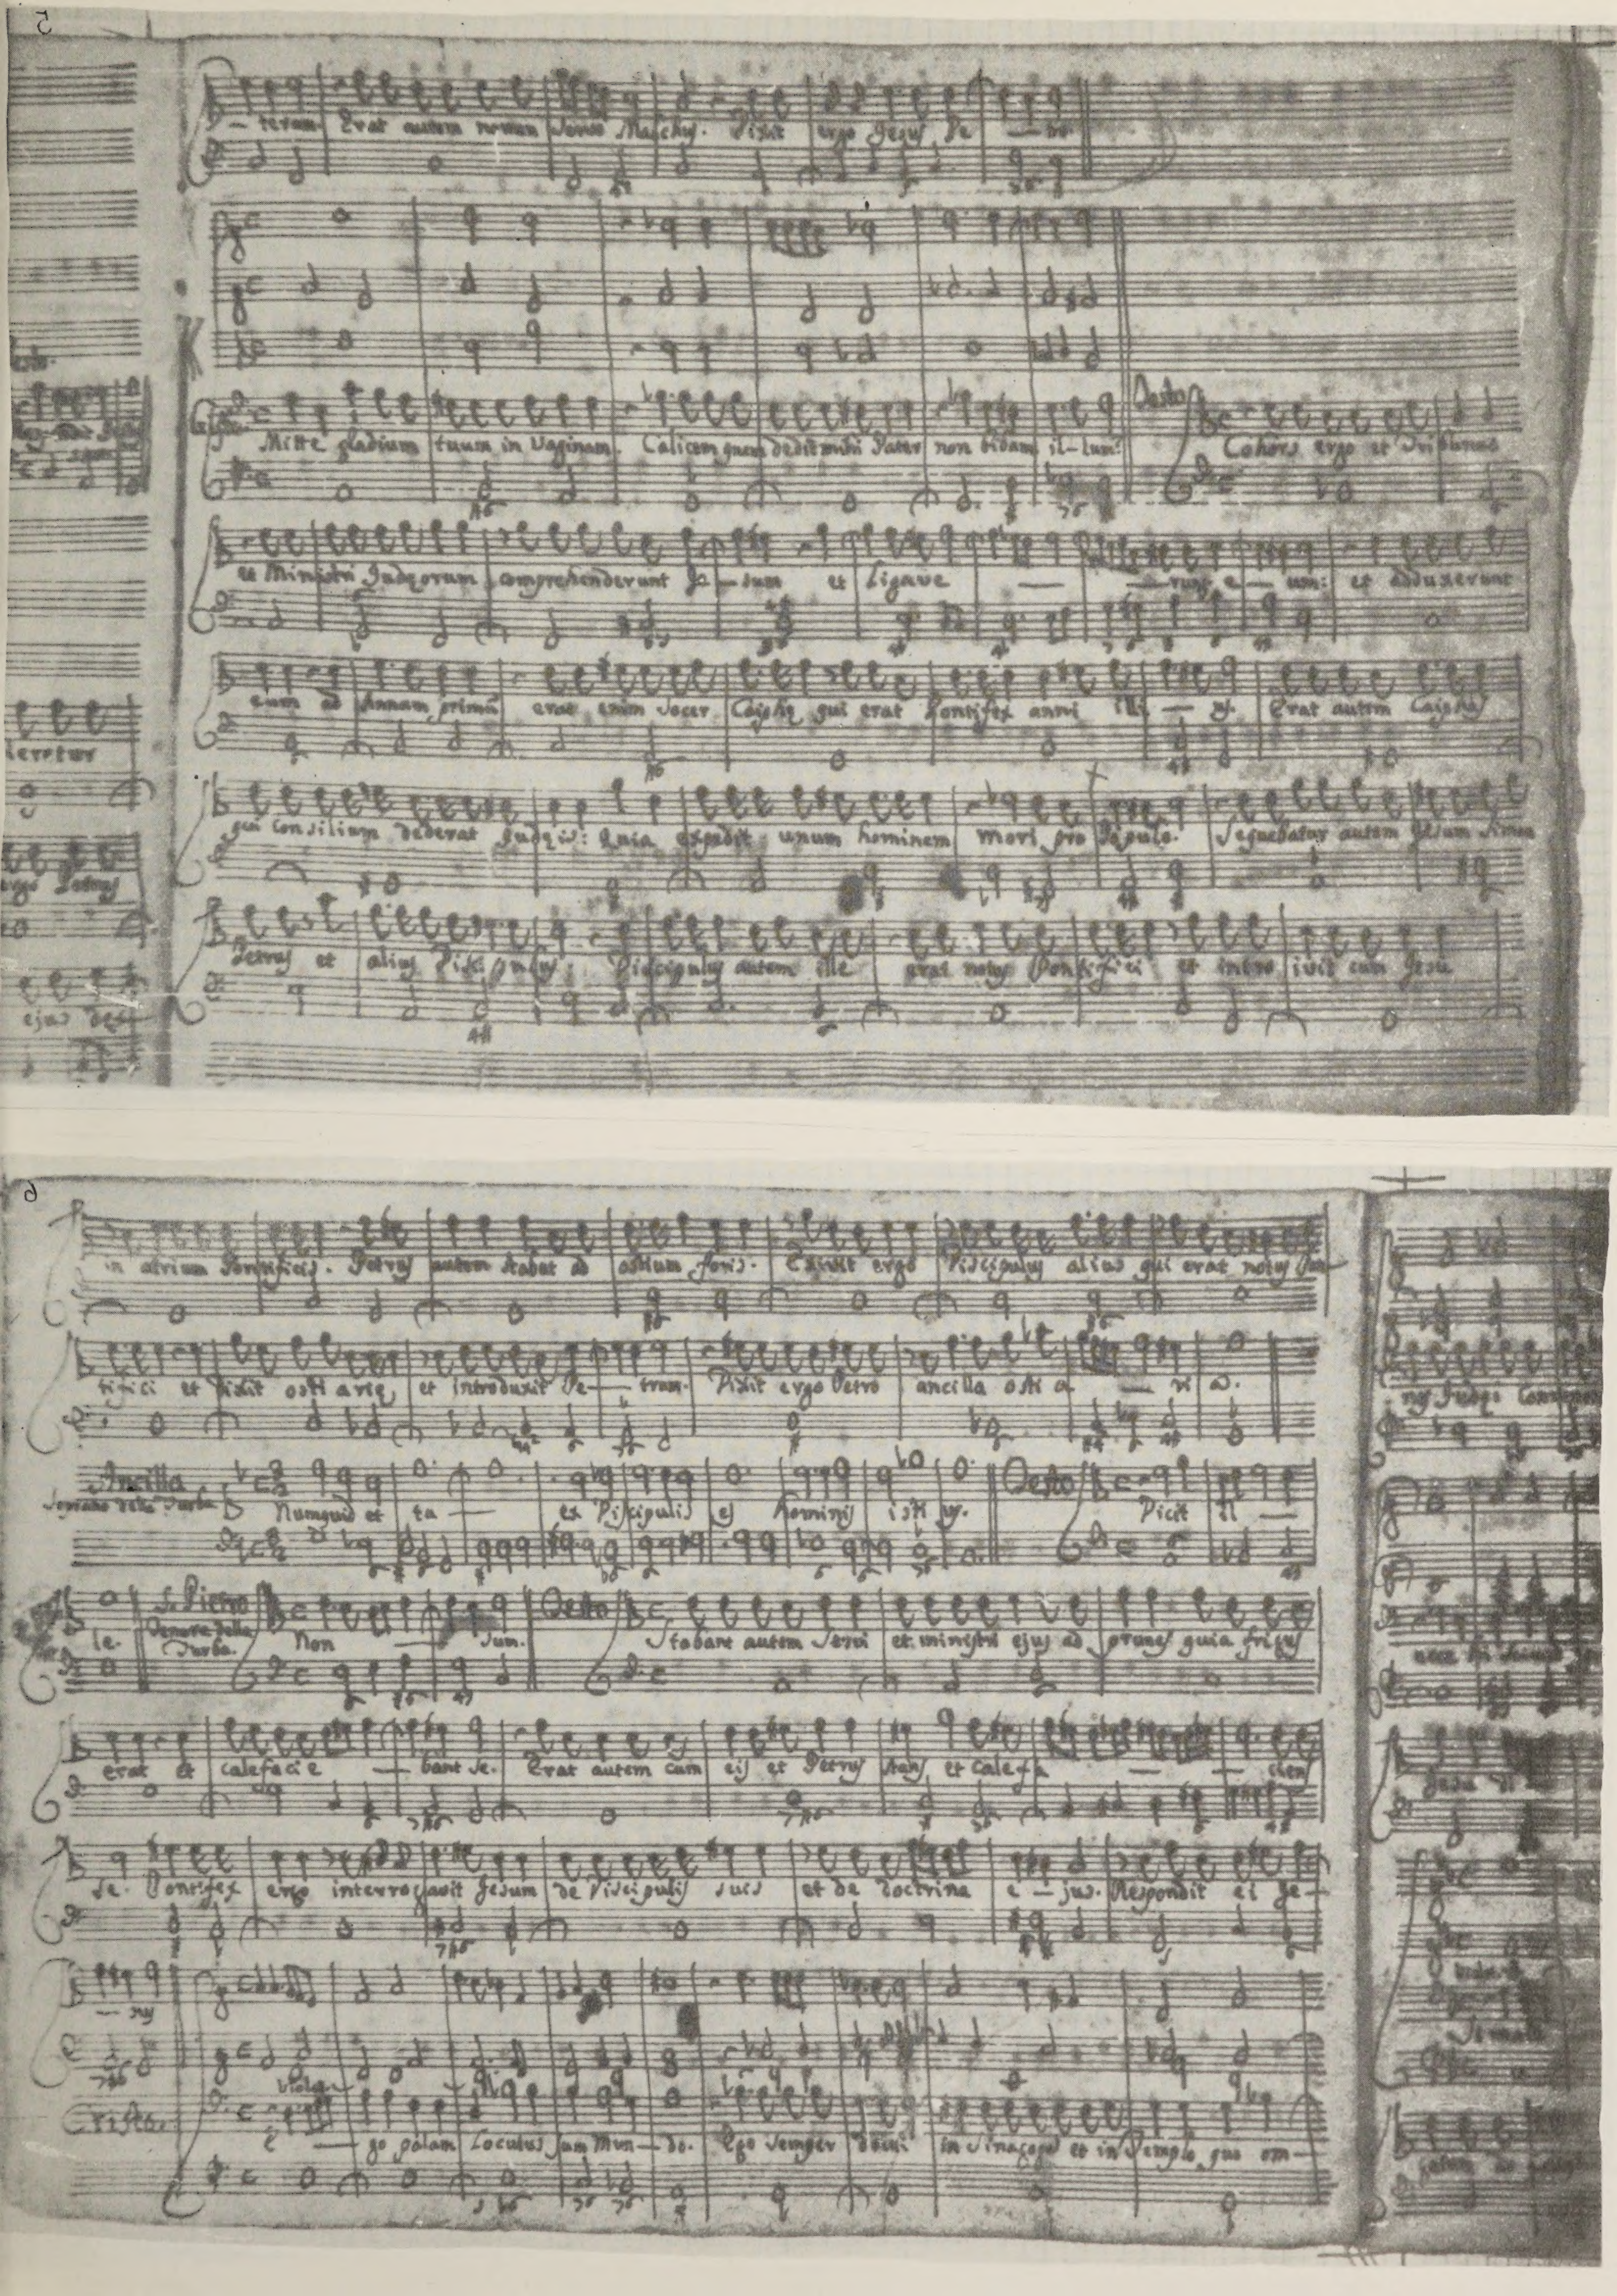 5
teram. Erat autem nomen Servo Malchus. Dixit ergo Jesus Pe — tro
Mitte gladium tuum in Vaginam. Calicem quem dedit mihi Pater non bibam il-lum? Testo Cohors ergo et Tribunus
et Ministri Judęorum comprehenderunt Je — sum et Ligave — — runt e — um: et adduxerunt
eum ad Annam primũ erat enim Socer Caiphę qui erat Pontifex anni illi — us. Erat autem Caiphas
qui Consilium dederat Judęis: Quia expedit unum hominem mori pro Populo. Sequebatur autem Jesum Simon
Petrus et alius Discipulus. Discipulus autem ille erat notus Pontifici et intro ivit cum Jesu
6
in atrium Pontificis. Petrus autem stabat ad ostium foris. Exivit ergo Discipulus alius qui erat notus Pon-
tifici et dixit osti arię, et introduxit Pe — trum. Dixit ergo Petro ancilla osti a — ri a.
Ancilla
Soprano della Turba Numquid et tu — ex Discipulis es hominis isti us. Testo Dicit il —
le. S. Pietro Tenore della Turba. Non — sum. Testo Stabant autem Servi et ministri ejus ad prunas quia frigus
erat et calefacie — bant se. Erat autem cum eis et Petrus stans et Calefa — — ciens
se. Pontifex ergo interrogavit Jesum de Discipulis suis et de Doctrina e — jus. Respondit ei Je —
— sus
Viola
Cristo. E — go palam Locutus sum Mun — do. Ego Semper docui in Sinagoga et in Templo quo om —